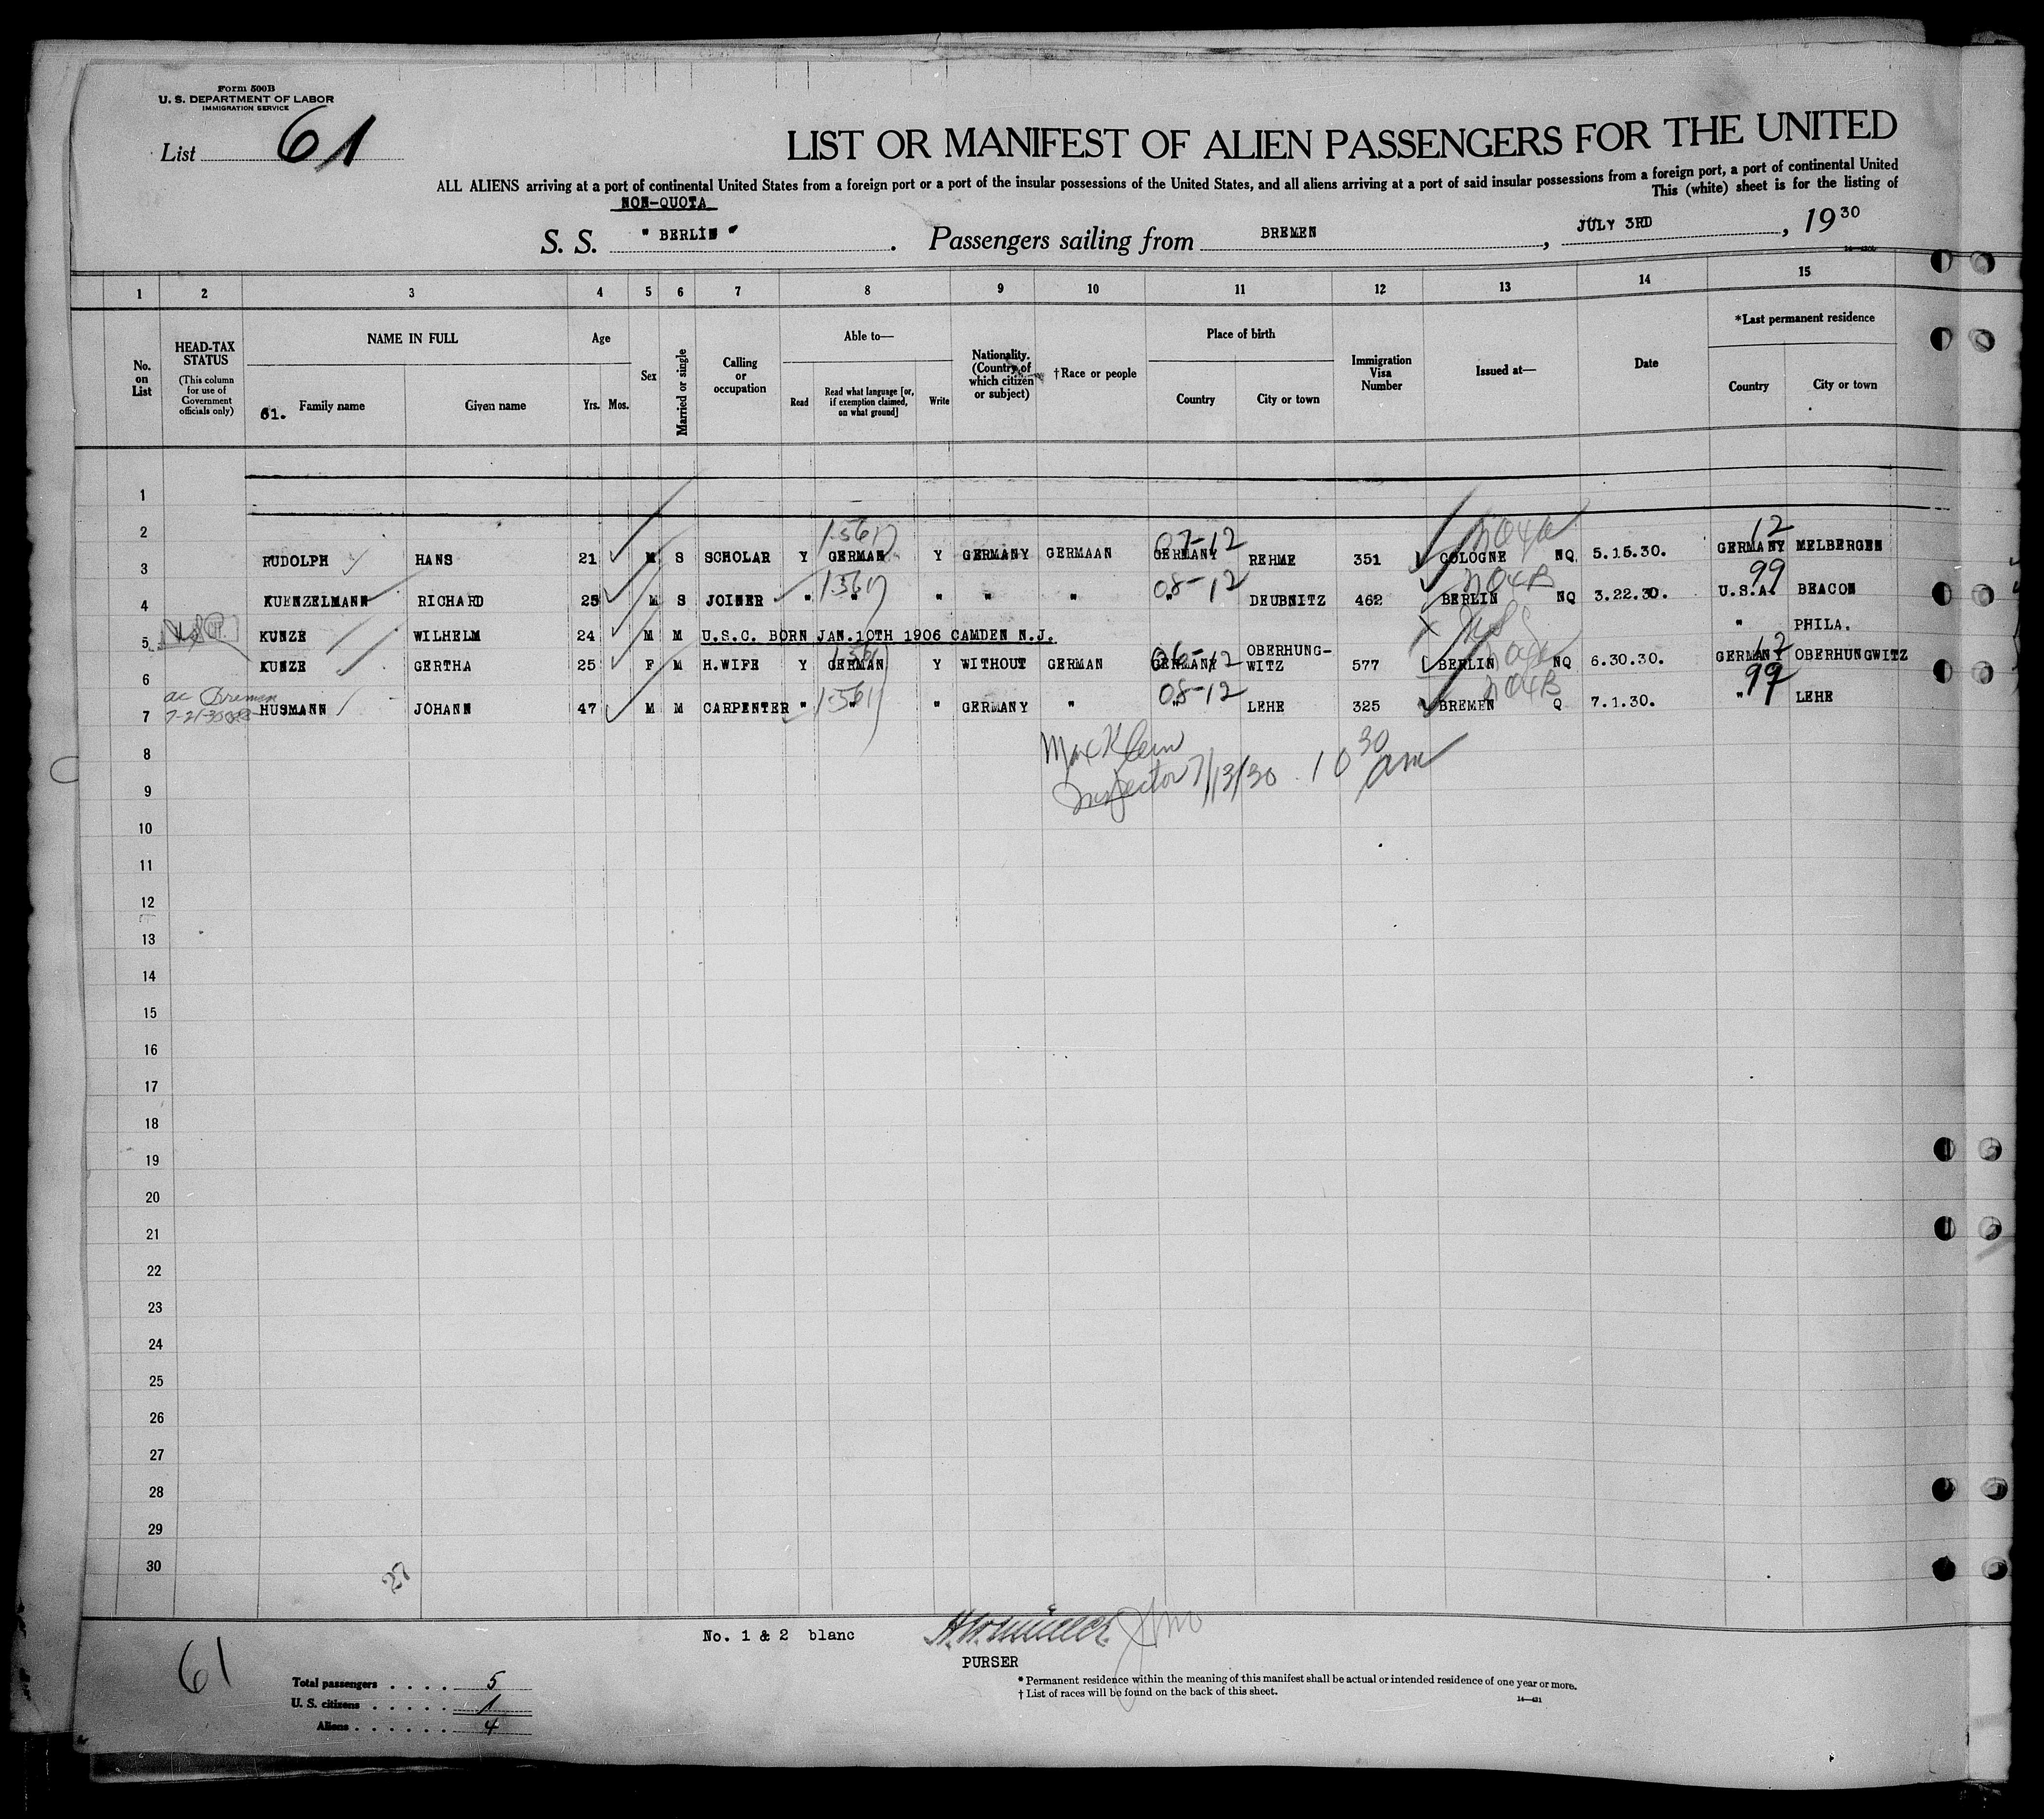 Form 500B
U. S. DEPARTMENT OF LABOR
IMMIGRATION SERVICE
List 61
LIST OR MANIFEST OF ALIEN PASSENGERS FOR THE UNITED
ALL ALIENS arriving at a port of continental United States from a foreign port or a port of the insular possessions of the United States, and all aliens arriving at a port of said insular possessions from a foreign port, a port of continental United
This (white) sheet is for the listing of
NON-QUOTA
S. S. " BERLIN " . Passengers sailing from BREMEN , JULY 3RD , 19 30
1 2 3 4 5 6 7 8 9 10 11 12 13 14 15
No. on List
HEAD-TAX STATUS
(This column for use of Government officials only)
NAME IN FULL
61. Family name
Given name
Age
Yrs. Mos.
Sex
Married or single
Calling or occupation
Able to—
Read
Read what language [or, if exemption claimed, on what ground]
Write
Nationality. (Country of which citizen or subject)
†Race or people
Place of birth
Country
City or town
Immigration Visa Number
Issued at—
Date
*Last permanent residence
Country
City or town
1
2
1561 07-12 12
3 RUDOLPH HANS 21 M S SCHOLAR Y GERMAN Y GERMANY GERMAAN GERMANY REHME 351 COLOGNE NQ 5.15.30. GERMANY MELBERGEN
1561 08-12 NO4B 99
4 KUENZELMANN RICHARD 25 M S JOINER " " " " " " DEUBNITZ 462 BERLIN NQ 3.22.30. U.S.A. BEACON
5 KUNZE WILHELM 24 M M U.S.C. BORN JAN.10TH 1906 CAMDEN N.J. " PHILA.
1561 06-12 12
6 KUNZE GERTHA 25 F M H.WIFE Y GERMAN Y WITHOUT GERMAN GERMANY OBERHUNG-WITZ 577 BERLIN NQ 6.30.30. GERMANY OBERHUNGWITZ
ac Bremen
1561 08-12 NO4B 99
7 HUSMANN JOHANN 47 M M CARPENTER " " " GERMANY " " LEHE 325 BREMEN Q 7.1.30. " LEHE
8 Max Klein
9 Inspector 7/13/30 10 30 am
10
11
12
13
14
15
16
17
18
19
20
21
22
23
24
25
26
27
28
29
30
27
No. 1 & 2 blanc
PURSER
61
Total passengers . . . . 5
U. S. citizens . . . . . 1
Aliens . . . . . . 4
* Permanent residence within the meaning of this manifest shall be actual or intended residence of one year or more.
† List of races will be found on the back of this sheet.
14—431